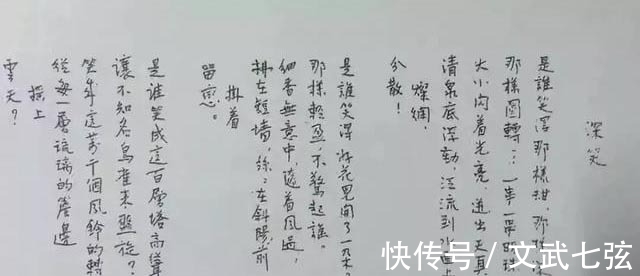 深笑
是誰笑得那樣甜,那樣
那樣圓轉:一串一串的珠
大小闪着光亮,迸出天真
清泉底浮動,泛流到水面上
燦爛,
分散!
是誰笑得好花兒開了一朵
那樣輕盈,不驚起誰。
細香無意中,隨着風過,
拂在短墙,絲:在斜陽前
掛着
留恋。
是谁笑成這百層塔高聳
讓不知名鳥雀来盤旋?
笑成這萬千個風鈴的轉
從每一層琉璃的簷邊
摇上
雲天?
快传号/文武七弦